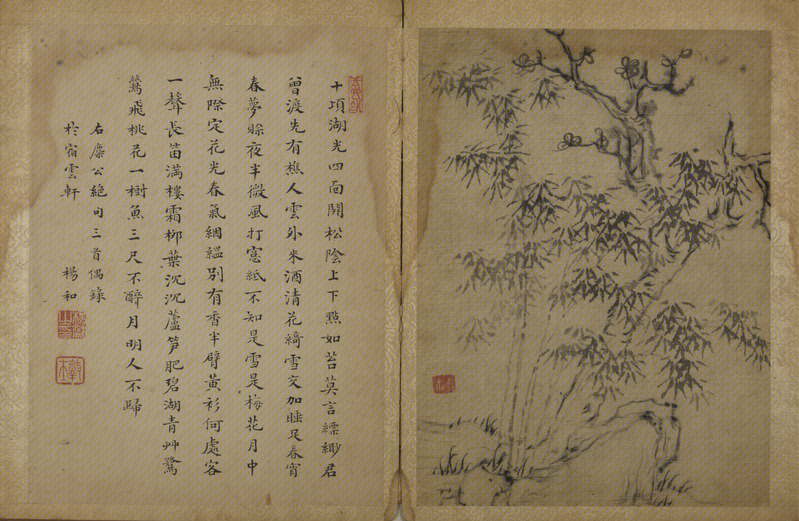 十項湖光四面開松陰上下點如苔莫言縹緲君
曾渡先有樵人雲外來酒清花綺雪交加睡足春宵
春夢賒夜半微風打窓紙不知是雪是梅花月中
無定花光春氣絪縕別有香半臂黃衫何處客
一聲長笛滿樓霜柳葉沉沉蘆笋肥碧湖青艸鷺
鷥飛桃花一樹魚三尺不醉月明人不歸
右廉公絕句三首偶錄
於宿雲軒 楊和